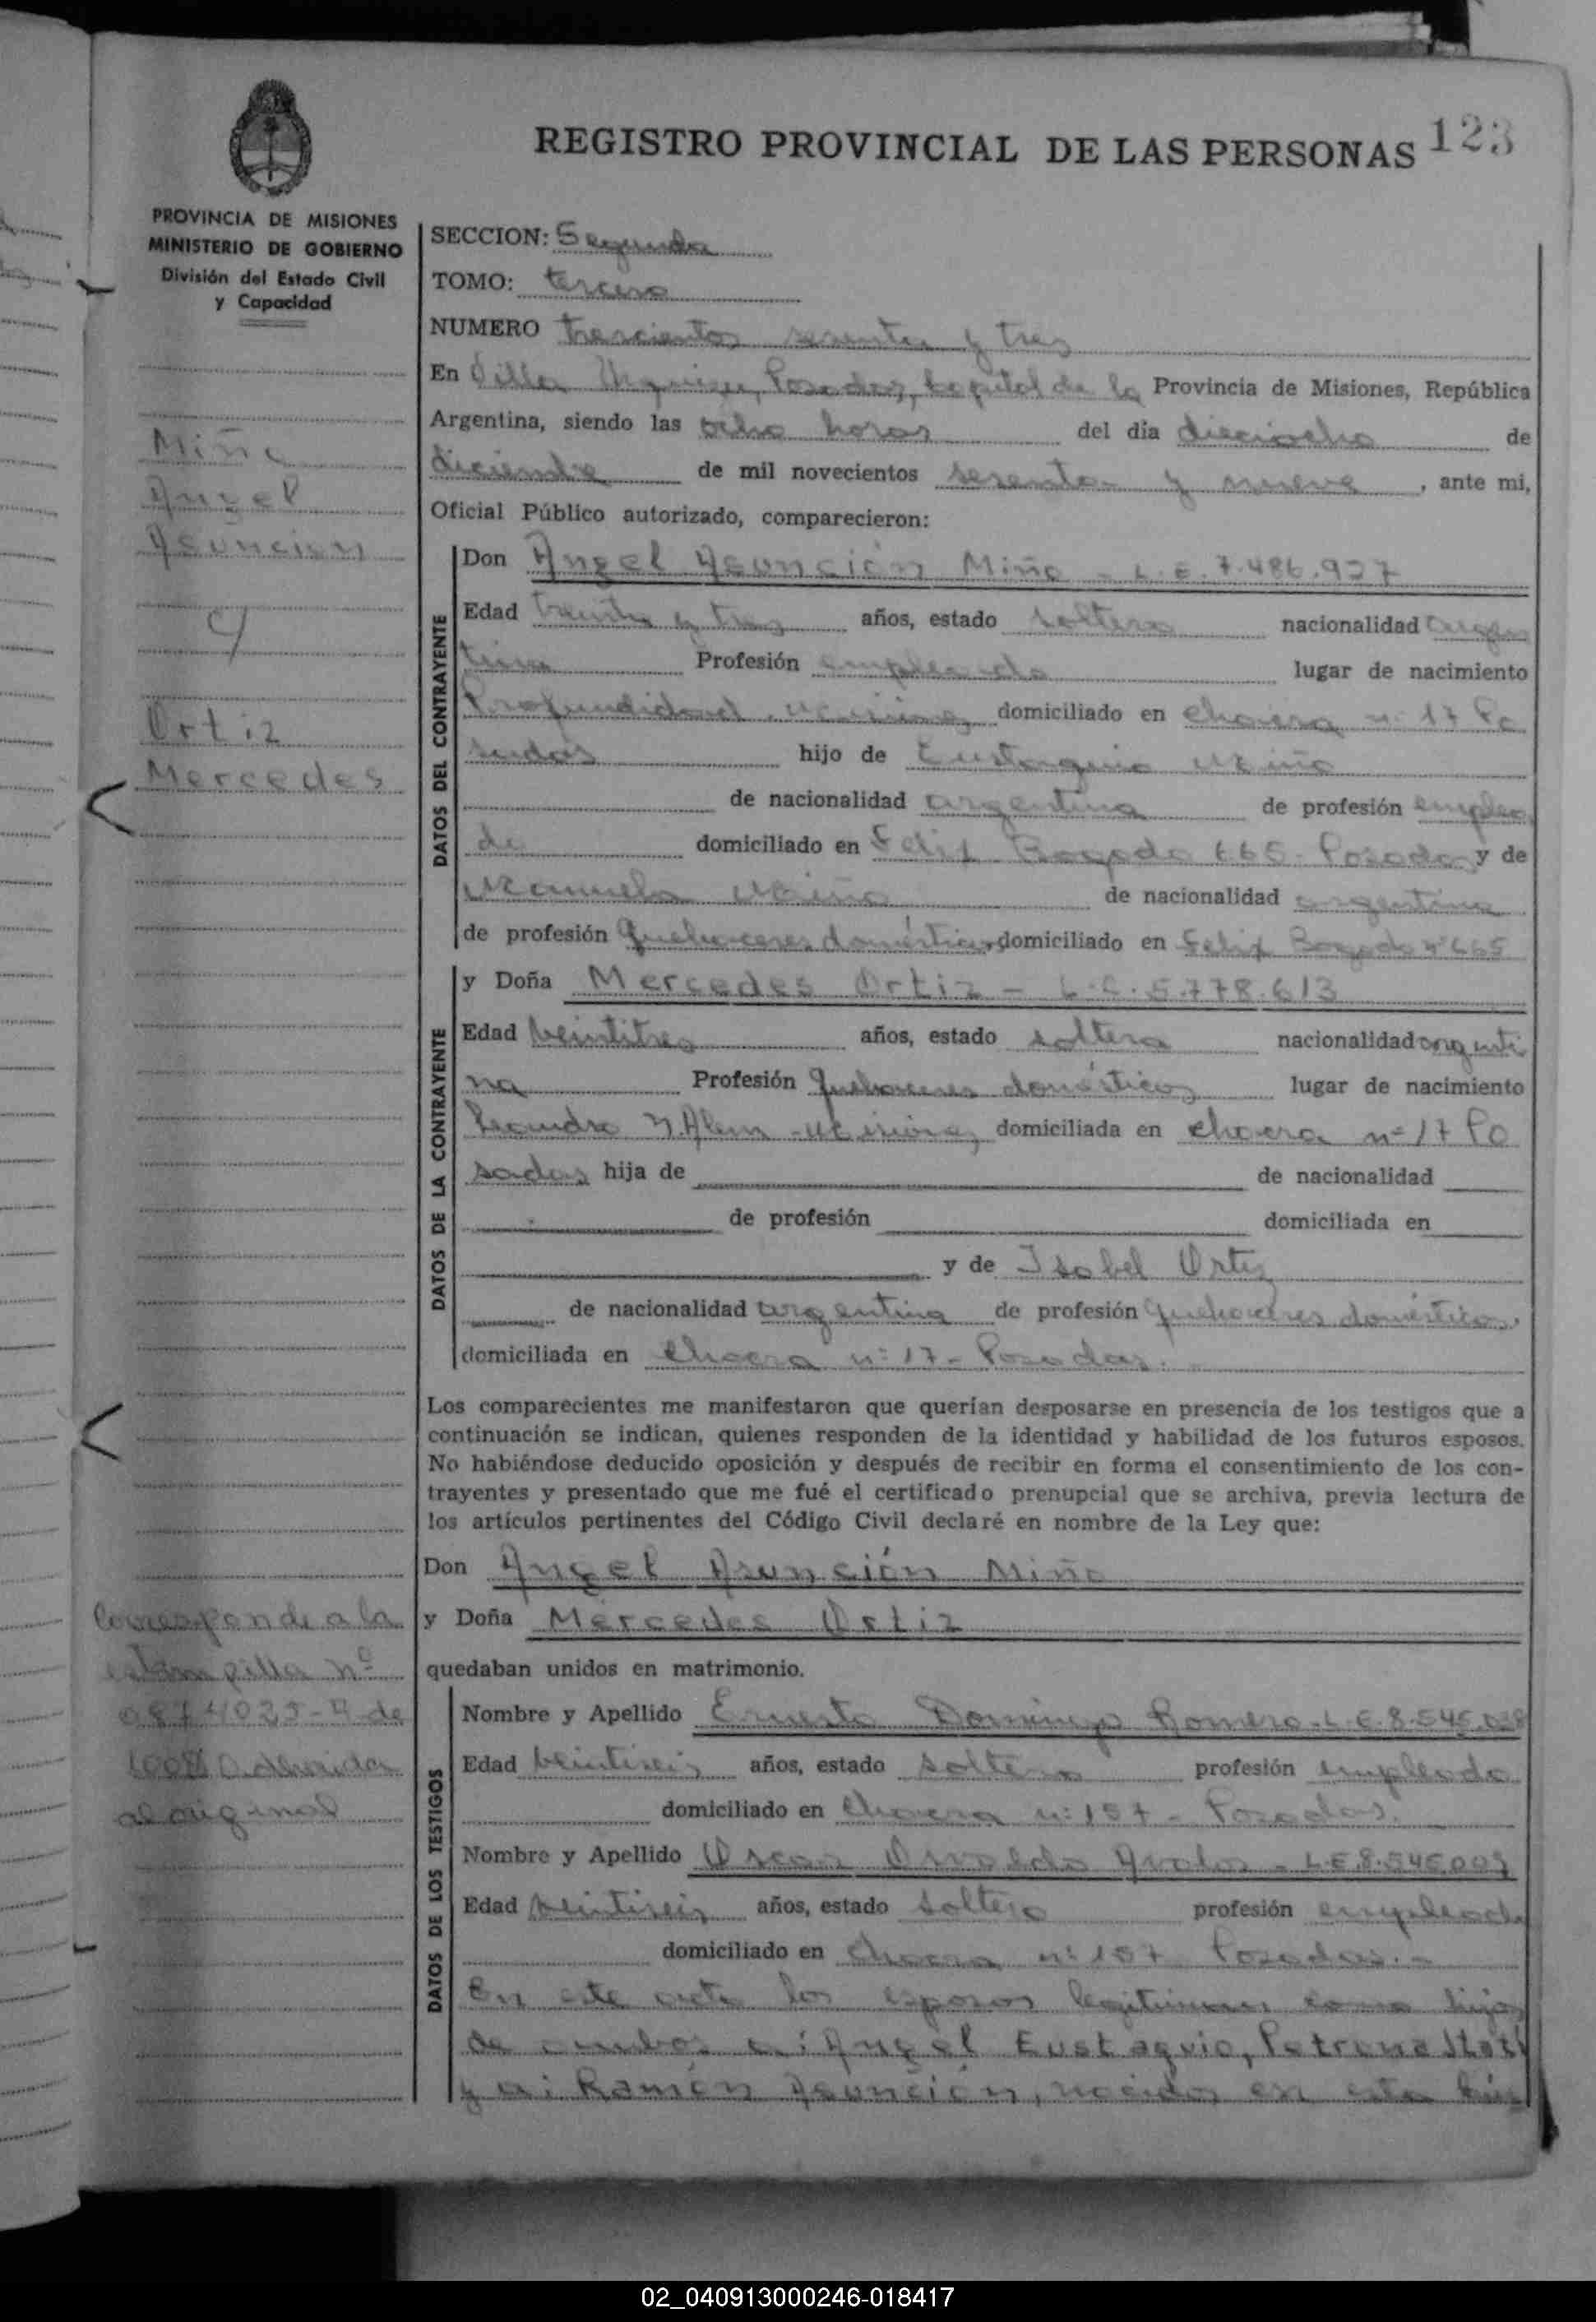 REGISTRO PROVINCIAL DE LAS PERSONAS 123
PROVINCIA DE MISIONES
MINISTERIO DE GOBIERNO
División del Estado Civil
y Capacidad
SECCION: Segunda
TOMO: tercero
NUMERO trescientos sesenta y tres
En Villa Urquiza, Posadas, Capital de la Provincia de Misiones, República
Argentina, siendo las ocho horas del día dieciocho de
diciembre de mil novecientos sesenta y nueve, ante mi,
Oficial Público autorizado, comparecieron:
Miño
Angel
Asuncion
y
Ortiz
Mercedes
DATOS DEL CONTRAYENTE
Don Angel Asunción Miño - L.E. 7.486.927
Edad treinta y tres años, estado soltero nacionalidad argen
tina Profesión empleado lugar de nacimiento
Profundidad, Misiones domiciliado en chacra nº 17 Po
sadas hijo de Eustaquio Miño
de nacionalidad argentina de profesión emplea
do domiciliado en Felix Bogado 665 - Posadas y de
Manuela Miño de nacionalidad argentina
de profesión Quehaceres domésticos, domiciliado en Felix Bogado nº 665
DATOS DE LA CONTRAYENTE
y Doña Mercedes Ortiz - L.C. 5.778.613
Edad veintitres años, estado soltera nacionalidad argenti
na Profesión Quehaceres domésticos lugar de nacimiento
Leandro N. Alem - Misiones, domiciliada en chacra nº 17 Po
sadas hija de de nacionalidad
de profesión domiciliada en
y de Isabel Ortiz
de nacionalidad argentina de profesión quehaceres domésticos,
domiciliada en chacra nº 17 - Posadas.
Los comparecientes me manifestaron que querían desposarse en presencia de los testigos que a
continuación se indican, quienes responden de la identidad y habilidad de los futuros esposos.
No habiéndose deducido oposición y después de recibir en forma el consentimiento de los con-
trayentes y presentado que me fué el certificado prenupcial que se archiva, previa lectura de
los artículos pertinentes del Código Civil declaré en nombre de la Ley que:
Don Angel Asunción Miño
y Doña Mercedes Ortiz
quedaban unidos en matrimonio.
Corresponde a la
estampilla nº
0874025-4 de
adherida
al original
DATOS DE LOS TESTIGOS
Nombre y Apellido Ernesto Domingo Romero - L.E. 8.545.028
Edad veintiseis años, estado soltero profesión empleado
domiciliado en chacra nº 157 - Posadas.
Nombre y Apellido Oscar Osvaldo Avalos - L.E. 8.545.009
Edad veintiseis años, estado soltero profesión empleado
domiciliado en chacra nº 157 Posadas. -
En este acto los esposos legitiman como hijos
de ambos a: Angel Eustaquio, Petrona
y a: Ramón Asunción, nacidos en esta
02_040913000246-018417